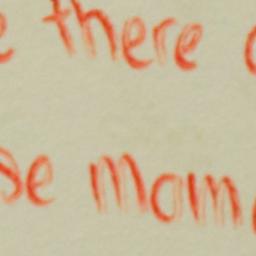 there
se mom